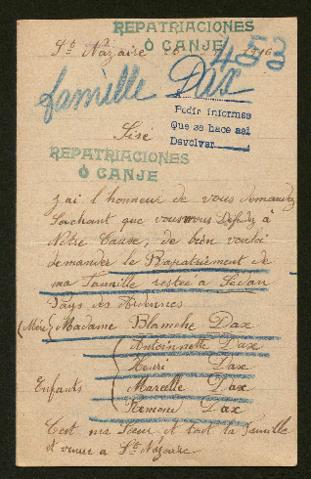 REPATRIACIONES
Ó CANJE
St Nazaire
453
famille Dax
Pedir informes
Que se hace así
Devolver
Sire
REPATRIACIONES
Ó CANJE
J'ai l'honneur de vous demander
Sachant que vous vous
Nôtre Cause, de bien vouloir
demander le Rapatriement de
ma Famille restée à Sedan
Pays des Ardennes
(Mère) Madame Blanche Dax
Antoinnette Dax
Henri Dax
Enfants Marcelle Dax
Remone Dax
C'est ma Sœur et tout la Famille
et venir a St Nazaire